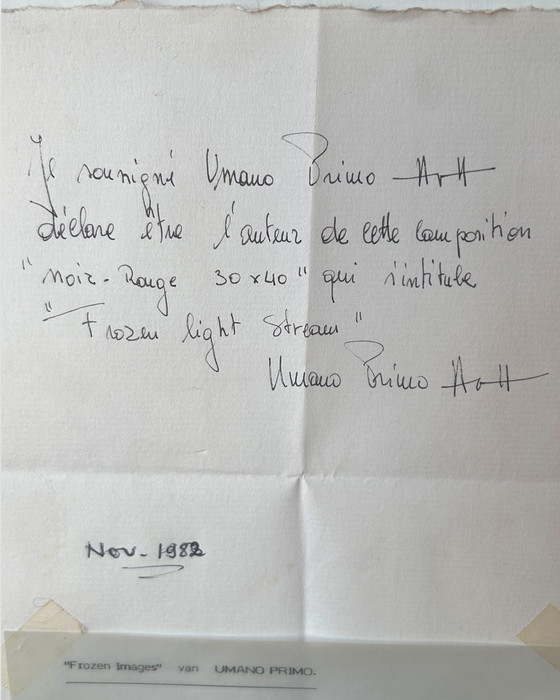 Je soussigné Umano Primo Art
déclare être l'auteur de cette composition
"Noir-Rouge 30x40" qui s'intitule
"Frozen light Stream"
Umano Primo Art
Nov. 1982
"Frozen Images" van UMANO PRIMO.